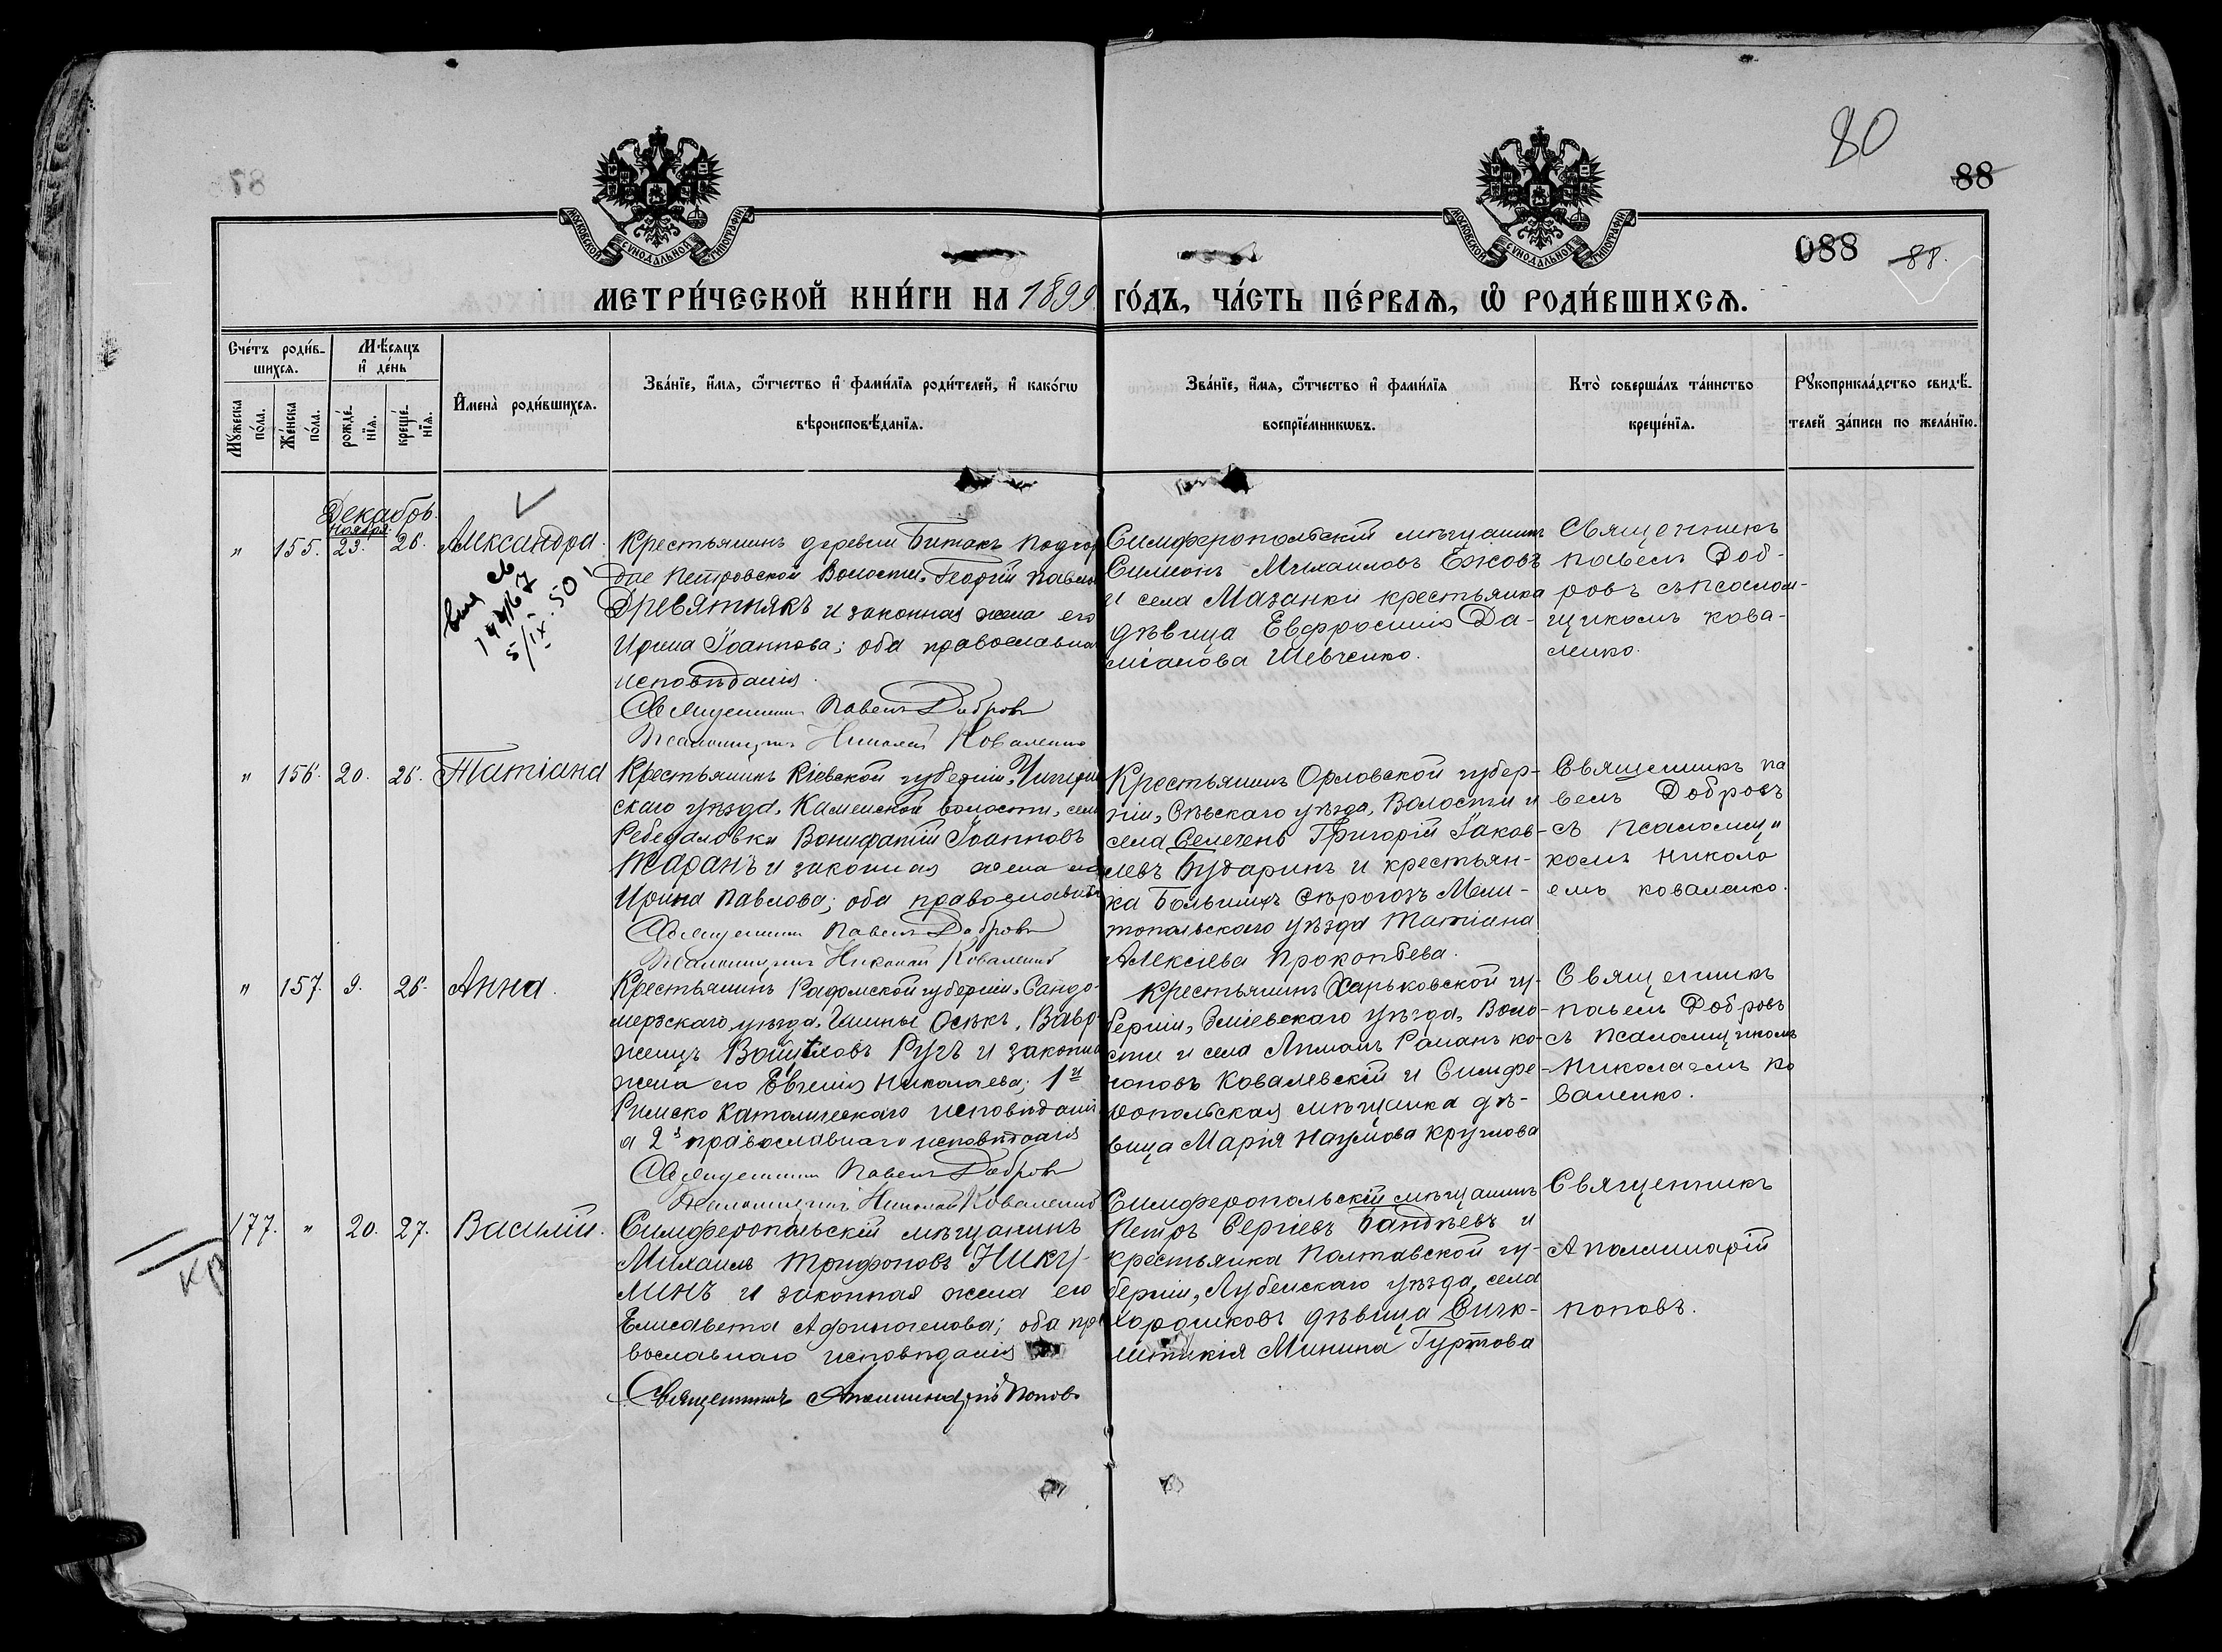 80
88
088 88.
МОСКОВСКОЙ СУНОДАЛЬНОЙ ТИПОГРАФІИ
МОСКОВСКОЙ СУНОДАЛЬНОЙ ТИПОГРАФІИ
МЕТРИ́ЧЕСКОЙ КНИ́ГИ НА 1899 ГО́ДЪ, ЧА́СТЬ ПЕ́РВАѦ, Ѡ РОДИ́ВШИХСѦ.
Сче́тъ роди́в-
шихсѧ.
Мꙋ́жеска по́ла.
Же́нска по́ла.
Мѣ́сѧцъ и де́нь
рожде́-
нїѧ.
креще́-
нїѧ.
Имена̀ роди́вшихсѧ.
Зва́нїе, и́мѧ, ѻ҆́тчество и фами́лїѧ роди́телей, и како́гѡ
вѣроисповѣ́данїѧ.
Зва́нїе, и́мѧ, ѻ҆́тчество и фами́лїѧ
воспрїе́мникѡвъ.
Кто̀ соверша́лъ та́инство
креще́нїѧ.
Рꙋкоприкла́дство свидѣ́-
телей за́писи по жела́нїю.
Декабрь.
Ноября.
" 155. 23. 26. Александра.
5/IX. 50
Крестьянинъ деревни Битакъ Подгор
Петровской Волости, Георгій Павло
Древятнякъ и законная жена его
Ирина Іоаннова; оба православна
исповѣданія.
Священникъ Павелъ Добровъ
Псаломщикъ Николай Коваленко
Симферопольскій мѣщанинъ
Симеонъ Михаиловъ Ежовъ
и села Мазанки крестьянка
дѣвица Евфросинія Да-
міанова Шевченко.
Священникъ
Павелъ Доб-
ровъ съ псалом-
щикомъ Кова-
ленко.
" 156. 20. 26. Татіана
Крестьянинъ Кіевской губерніи, Чигирин
скаго уѣзда, Каменской волости, села
Ребедаловки Вонифатій Іоанновъ
Таранъ и законная жена его
Ирина Павлова; оба православны
Священникъ Павелъ Добровъ
Псаломщикъ Николай Коваленко
Крестьянинъ Орловской губер-
ніи, Сѣвскаго уѣзда, Волости и
села Селечень Григорій Іаков-
левъ Бударинъ и крестьян-
ка Большихъ Сѣрогозъ Мели-
топольскаго уѣзда Татіана
Алексіева Прокопьева.
Священникъ Па
велъ Добровъ
съ псаломщи
комъ Никола
емъ Коваленко.
" 157. 9. 26. Анна.
Крестьянинъ Радомской губерніи, Сандо-
мерскаго уѣзда, Гмины Осѣкъ, Вавр-
женцъ Ругъ и законна
жена его Евгенія Николаева; 1й
Римско Католическаго исповѣданія
а 2я православнаго исповѣданія
Священникъ Павелъ Добровъ
Псаломщикъ Николай Коваленко
Крестьянинъ Харьковской гу-
берніи, Зміевскаго уѣзда, Воло-
сти и села Романъ Ко-
ноновъ Ковалевскій и Симфе-
ропольская мѣщанка дѣ-
вица Марія Наумова Круглова
Священникъ
Павелъ Добровъ
съ псаломщикомъ
Николаемъ Ко
валенко.
177. " 20. 27. Василій.
Симферопольскій мѣщанинъ
Михаилъ Трифоновъ Нику-
линъ и законная жена его
Елисавета Афиногенова; оба пра
вославнаго исповѣданія
Священникъ Аполлинарій Поповъ
Симферопольскій мѣщанинъ
Петръ Сергіевъ и
крестьянка Полтавской гу-
берніи, Лубенскаго уѣзда, села
дѣвица Синк-
литикія Минина Гуртова
Священникъ
Аполлинарій
Поповъ.